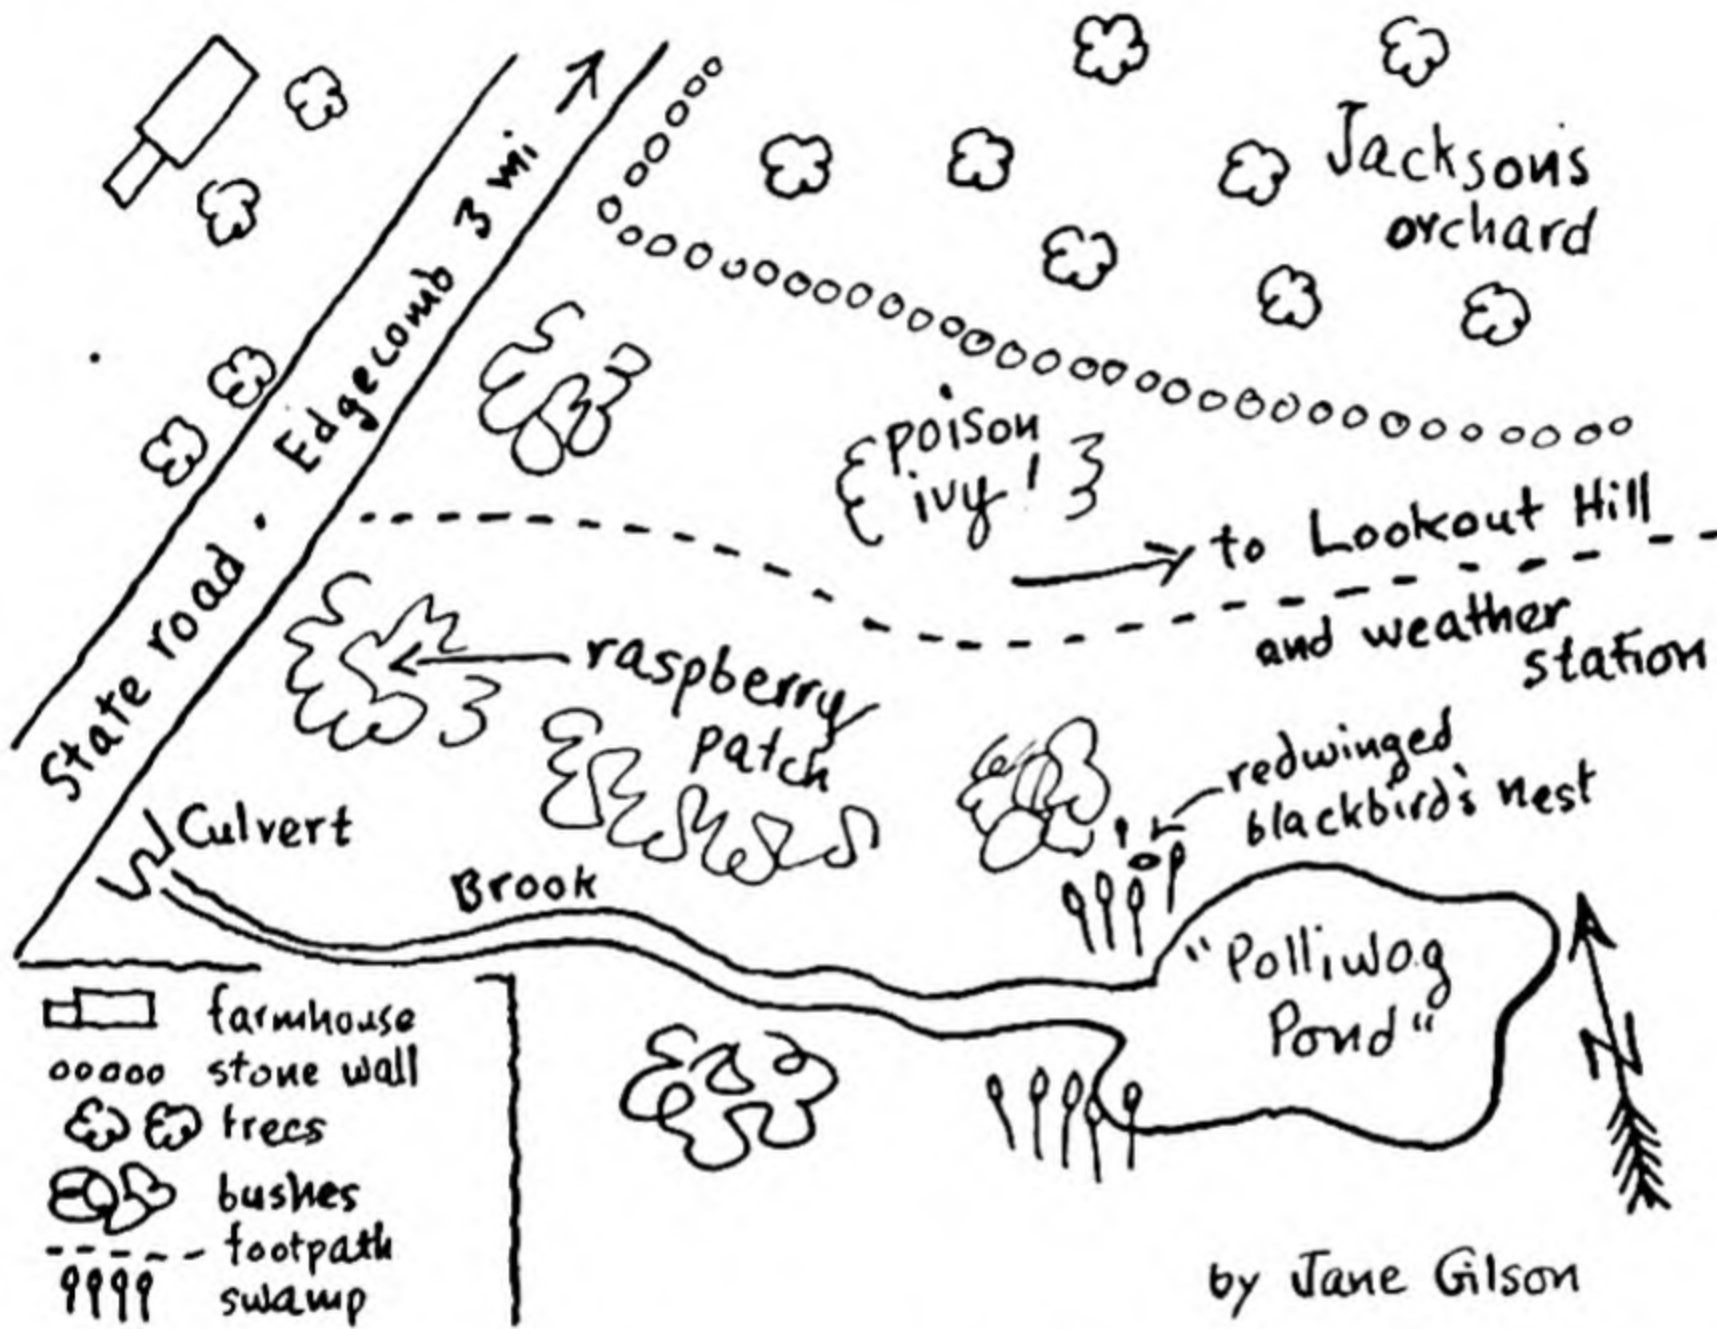 Jackson's
orchard
State road · Edgecomb 3 mi
poison
ivy!
to Lookout Hill
and weather
station
raspberry
patch
redwinged
blackbird's nest
Culvert
Brook
"Polliwog
Pond"
N
farmhouse
stone wall
trees
bushes
footpath
swamp
by Jane Gilson